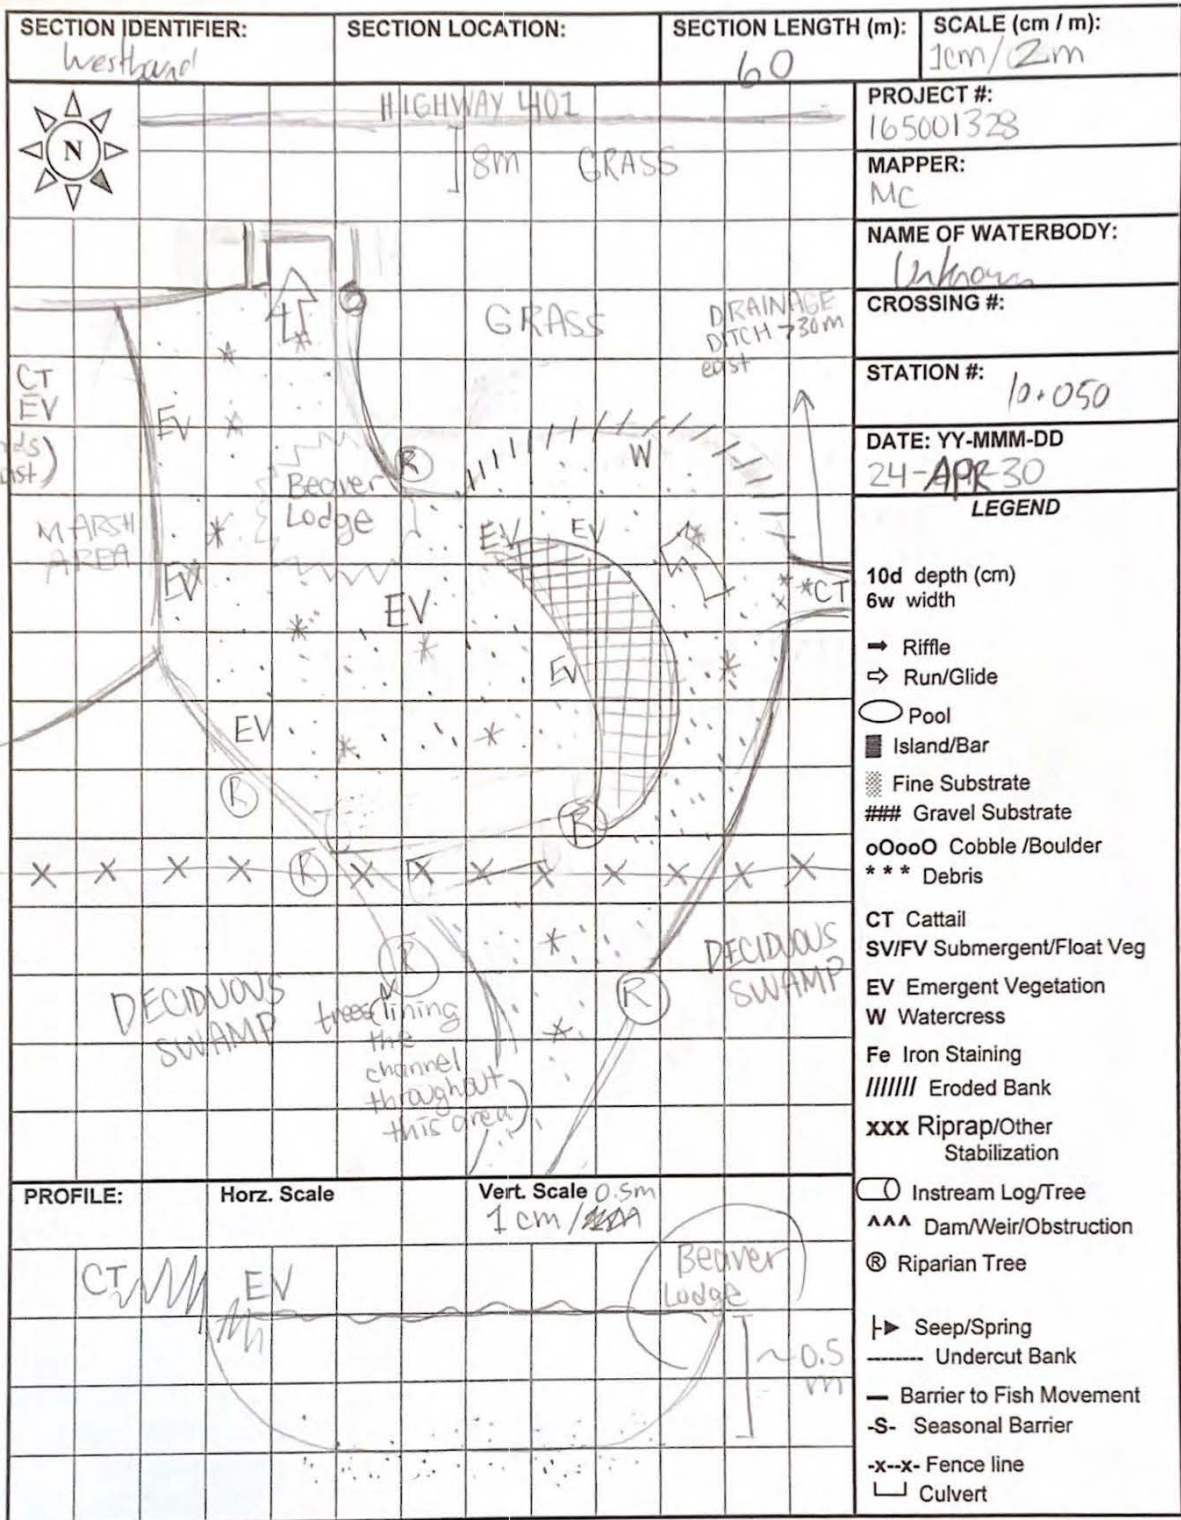 SECTION IDENTIFIER:
Westbound
SECTION LOCATION:
SECTION LENGTH (m):
60
SCALE (cm / m):
1cm/2m
N
HIGHWAY 401
8m GRASS
PROJECT #:
165001328
MAPPER:
MC
NAME OF WATERBODY:
Unknown
CROSSING #:
STATION #:
10+050
DATE: YY-MMM-DD
24-APR-30
GRASS
DRAINAGE
DITCH >30m
east
CT
EV
EV
R
W
Beaver
Lodge
MARSH
AREA
EV
EV
EV
EV
CT
EV
EV
R
R
X X X X R X X X X X X X X
R
DECIDUOUS
SWAMP
DECIDUOUS
SWAMP
R
trees lining
the
channel
throughout
this area)
LEGEND
10d depth (cm)
6w width
Riffle
Run/Glide
Pool
Island/Bar
Fine Substrate
### Gravel Substrate
oOooO Cobble /Boulder
* * * Debris
CT Cattail
SV/FV Submergent/Float Veg
EV Emergent Vegetation
W Watercress
Fe Iron Staining
/////// Eroded Bank
xxx Riprap/Other
Stabilization
Instream Log/Tree
^^^ Dam/Weir/Obstruction
® Riparian Tree
Seep/Spring
-------- Undercut Bank
— Barrier to Fish Movement
-S- Seasonal Barrier
-x--x- Fence line
Culvert
PROFILE:
Horz. Scale
Vert. Scale 0.5m
1cm/
CT
EV
Beaver
Lodge
~0.5
m